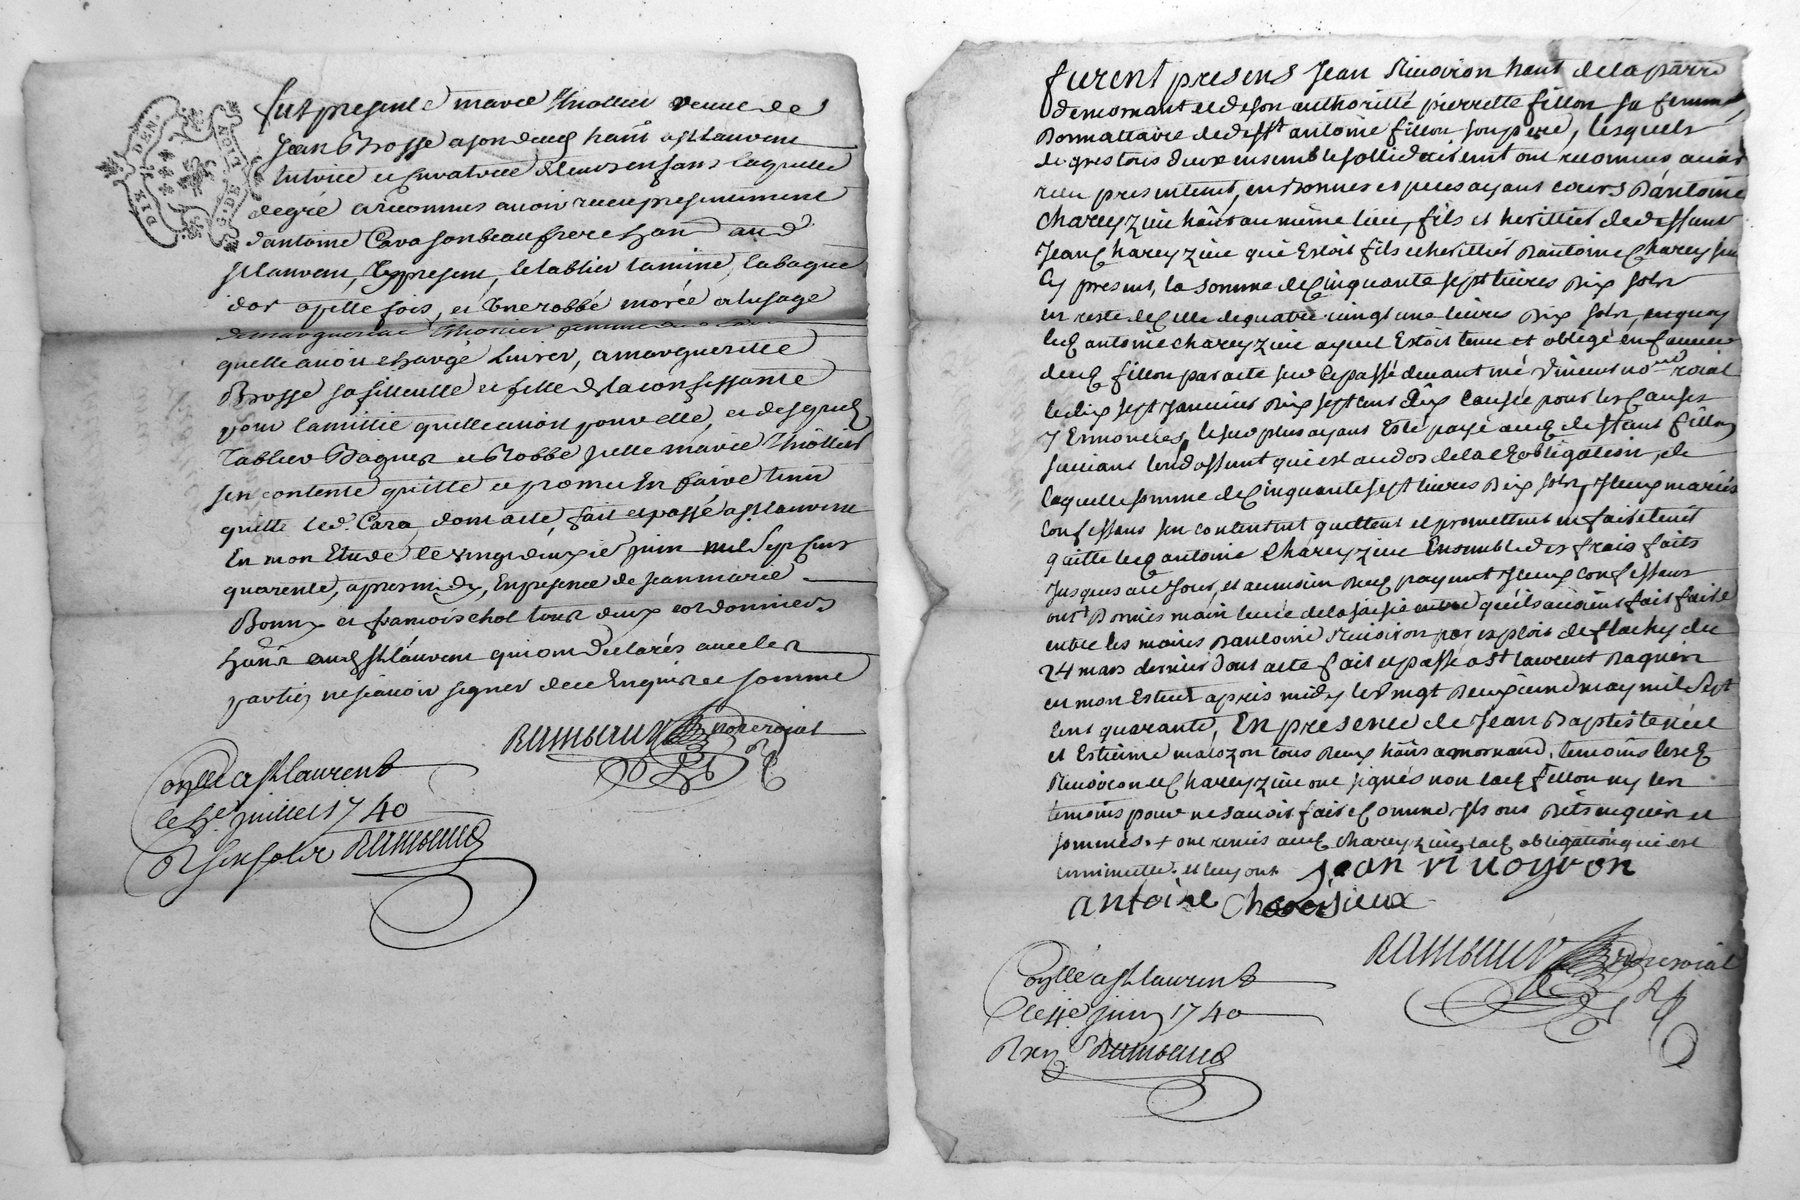 fut presente marie Thollier veuve de
Jean Brosse a son deced. hant. a St Laurent
tutrice et curatrice de leurs enfans laquelle
de gre a reconnus avoir receu presentement
d'antoine Cara son beau frere hant aud.
St Laurent, icy present, le tablier tamine, la bague
d'or a pelle fois, et une robbe morée a l'usage
de marguerite Thollier femme
quelle avoit chargé livrer, a marguerite
Brosse sa filleulle et fille de la confessante
pour l'amitié quelle avoit pour elle, et desquels
Tablier Bague et Robbe Jcelle marie Thollier
sen contente quitte et promet en faire tenir
quitte led. Cara, dont acte, fait et passé a St Laurent
En mon Etude le vingt deuxie juin mil sept cent
quarente, apres midy, En presence de Jean marie
Bonny et francois chol tous deux cordonniers
hants aud. St Laurent qui ont declarés avec les
parties ne scavoir signer de ce Enquis et sommé
Rambaud no.re roial
DIX DEN.
G. DE LION
Conllé a St Laurent
le 4e juillet 1740
R six sols Rambaud
furent presens Jean Rivoiron hant de la parre
de mornant et de son authoritté pierrette fillon sa femme
Donnattaire de defft antoine fillon son pere, lesquels
de gres tous deux ensemble sollidairement ont reconnus avoir
receu presentement, en Bonnes especes ayans cours D'antoine
Chareyzieu hant au même lieu, fils et heritier de deffunt
Jean Chareyzieu qui Estoit fils et heritier D'antoine Chareyzieu
Cy present, la somme de Cinquante sept livres Dix sols
en reste de Celle de quatre vingt une livres Dix sols, en quoy
led. antoine chareyzieu ayeul Estoit tenu et obligé en faveur
dud. fillon par acte receu et passé devant me Vincent no.re roial
le dix sept Janvier Dix sept cent Dix Causée pour les Causes
y Ennoncées, le surplus ayant Esté payé aud. deffunt fillon
suivant l'endossement qui est au dos de lad. obligation, de
laquelle somme de Cinquante sept livres Dix sols, Jceux mariés
Confessans sen contentent quittent et promettent en faire tenir
quitte led. antoine Chareyzieu Ensemble des frais faits
Jusques a ce Jour, et au moien dud. payment Jceux confessans
ont Donnés main levée de la saisie quils auroient fait faire
entre les mains D'antoine Rivoiron par exploit de flachy du
24 mars dernier Dont acte fait et passé a St Laurent Dagnen
en mon Estude apres midy le Vingt Deuxieme may mil sept
Cent quarante, En présence de Jean Baptiste
et Estienne malozon tous Deux hants a mornand, temoins lesd.
Rivoiron et Chareyzieu ont signés non lad. fillon ny les
temoins pour ne savoir faire Comme ils ont Dits enquis et
sommés. + ont remis aud. Chareyzieu lad. obligation qui est
en minutte. et luy ont Jean rivoyron
antoine Chareisieux
Rambaud no.re roial
Conllé a St Laurent
le 4e juin 1740
R Rambaud